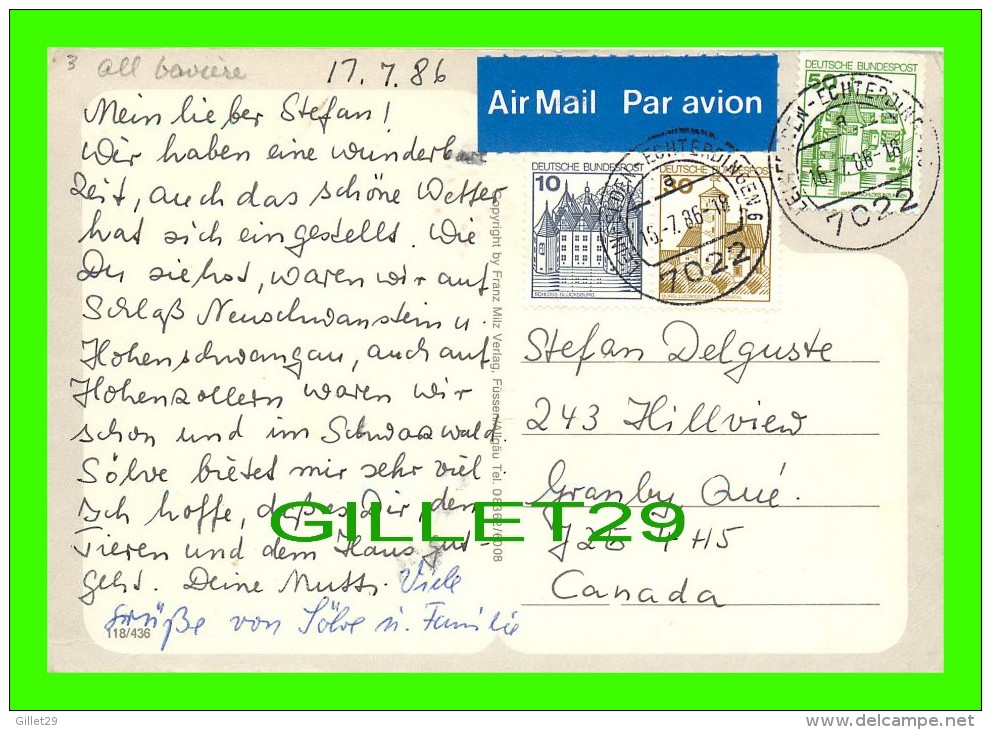 3 all bavière
17.7.86
Mein lieber Stefan!
Wir haben eine wunderbare
Zeit, auch das schöne Wetter
hat sich eingestellt. Wie
Du siehst, waren wir auf
Schloß Neuschwanstein u.
Hohenschwangau, auch auf
Hohenzollern waren wir
schon und im Schwarzwald.
Sölve bietet mir sehr viel
Ich hoffe, daß es Dir, den
Tieren und dem Haus gut
geht. Deine Mutti Viele
Grüße von Sölve u. Familie
118/436
Copyright by Franz Milz Verlag, Füssen/Allgäu Tel. 08362/6008
Air Mail Par avion
DEUTSCHE BUNDESPOST
50
DEUTSCHE BUNDESPOST
10
SCHLOSS GLÜCKSBURG
DEUTSCHE BUNDESPOST
30
BURG LUDWIGSTEIN
LEINFELDEN-ECHTERDINGEN 6
a
16.-7.86-18
7022
a
16.-7.86-18
7022
Stefan Delguste
243 Hillview
Granby Qué.
J2G 4H5
Canada
GILLET29
Gillet29
www.delcampe.net